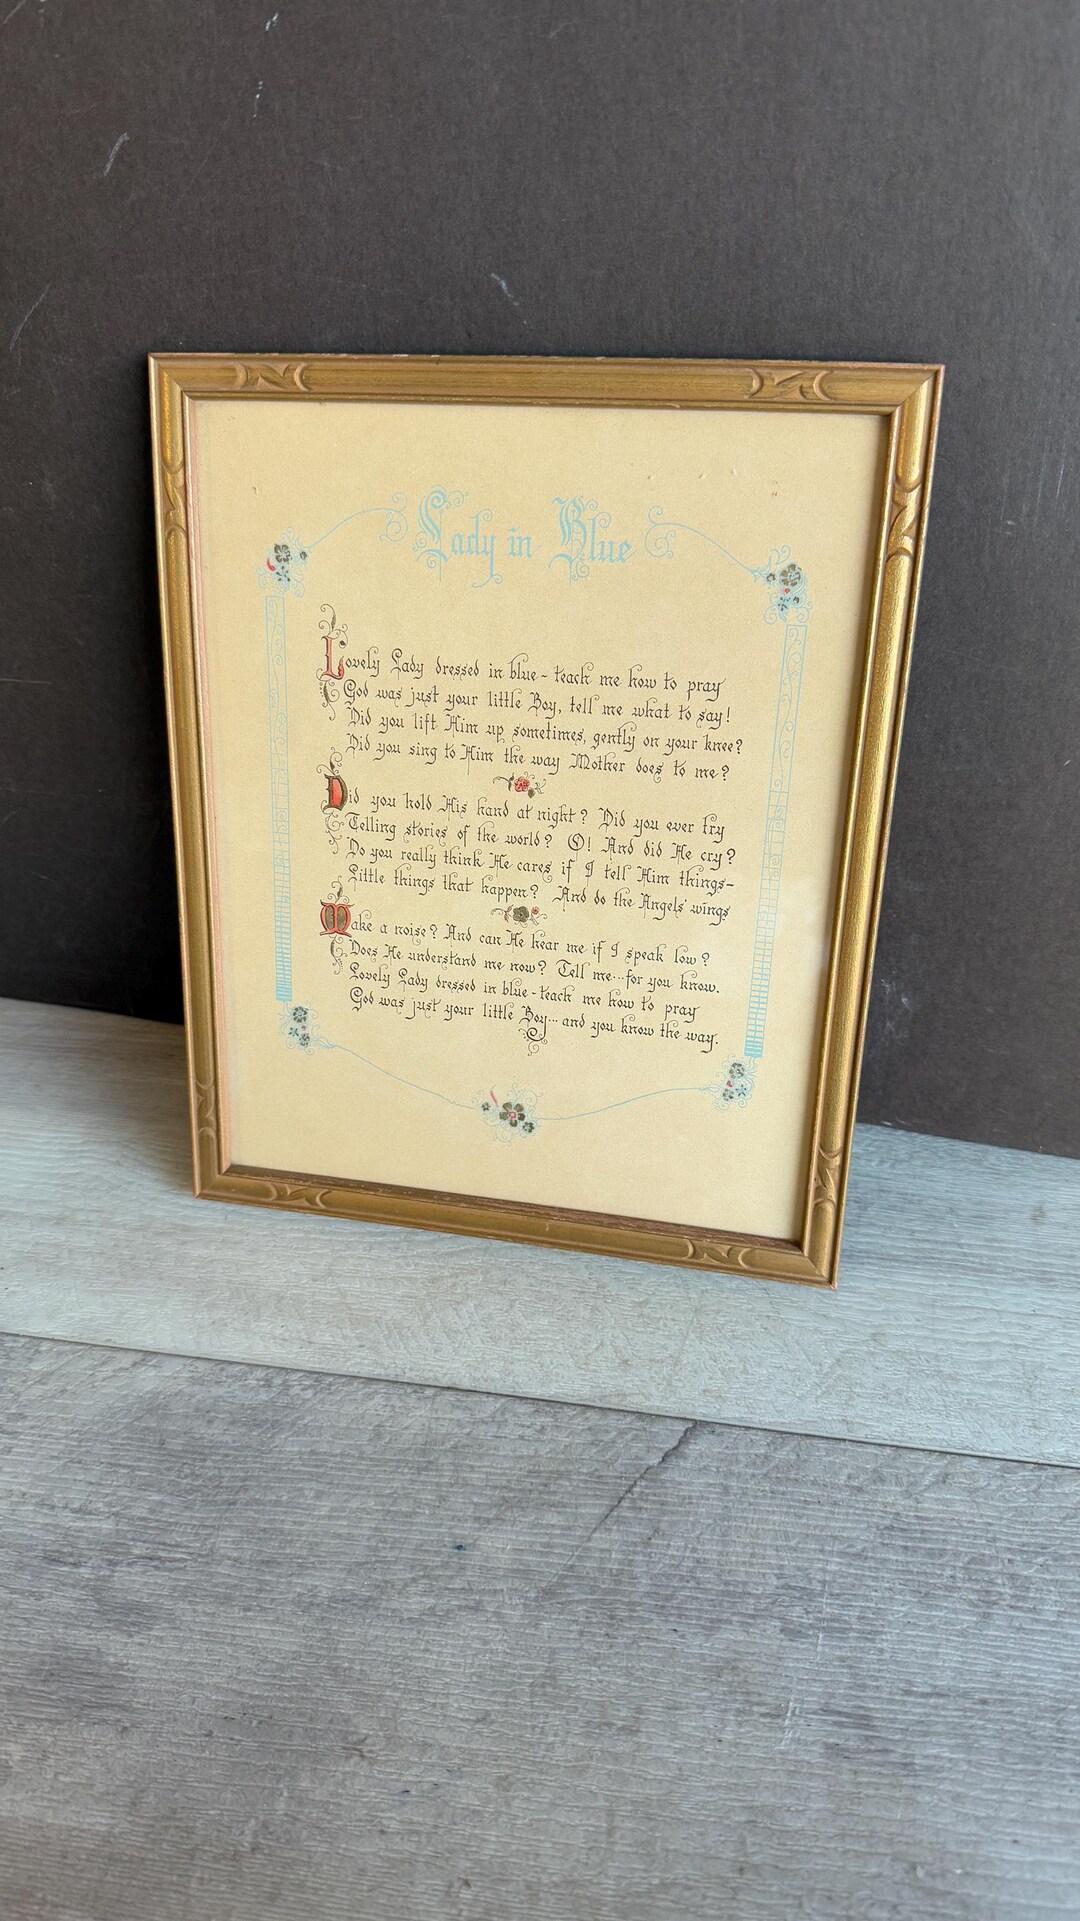 Lady in Blue
Lovely Lady dressed in blue - teach me how to pray
God was just your little Boy, tell me what to say!
Did you lift Him up, sometimes, gently on your knee?
Did you sing to Him the way Mother does to me?
Did you hold His hand at night? Did you ever try
Telling stories of the world? O! And did He cry?
Do you really think He cares if I tell Him things-
Little things that happen? And do the Angels' wings
Make a noise? And can He hear me if I speak low?
Does He understand me now? Tell me...for you know.
Lovely Lady dressed in blue - teach me how to pray
God was just your little Boy... and you know the way.